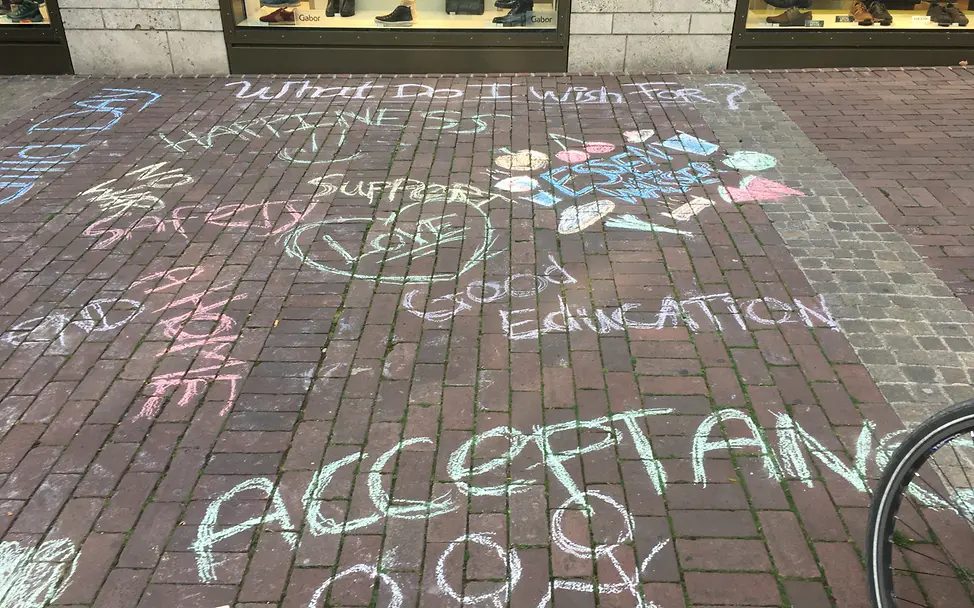 Gabor
Gabor
What Do I wish For?
HAPPINESS
NO
WAR
SUPPORT
SAFETY
LOVE
A HOME
Good
EdUCATION
ACCEPTANC